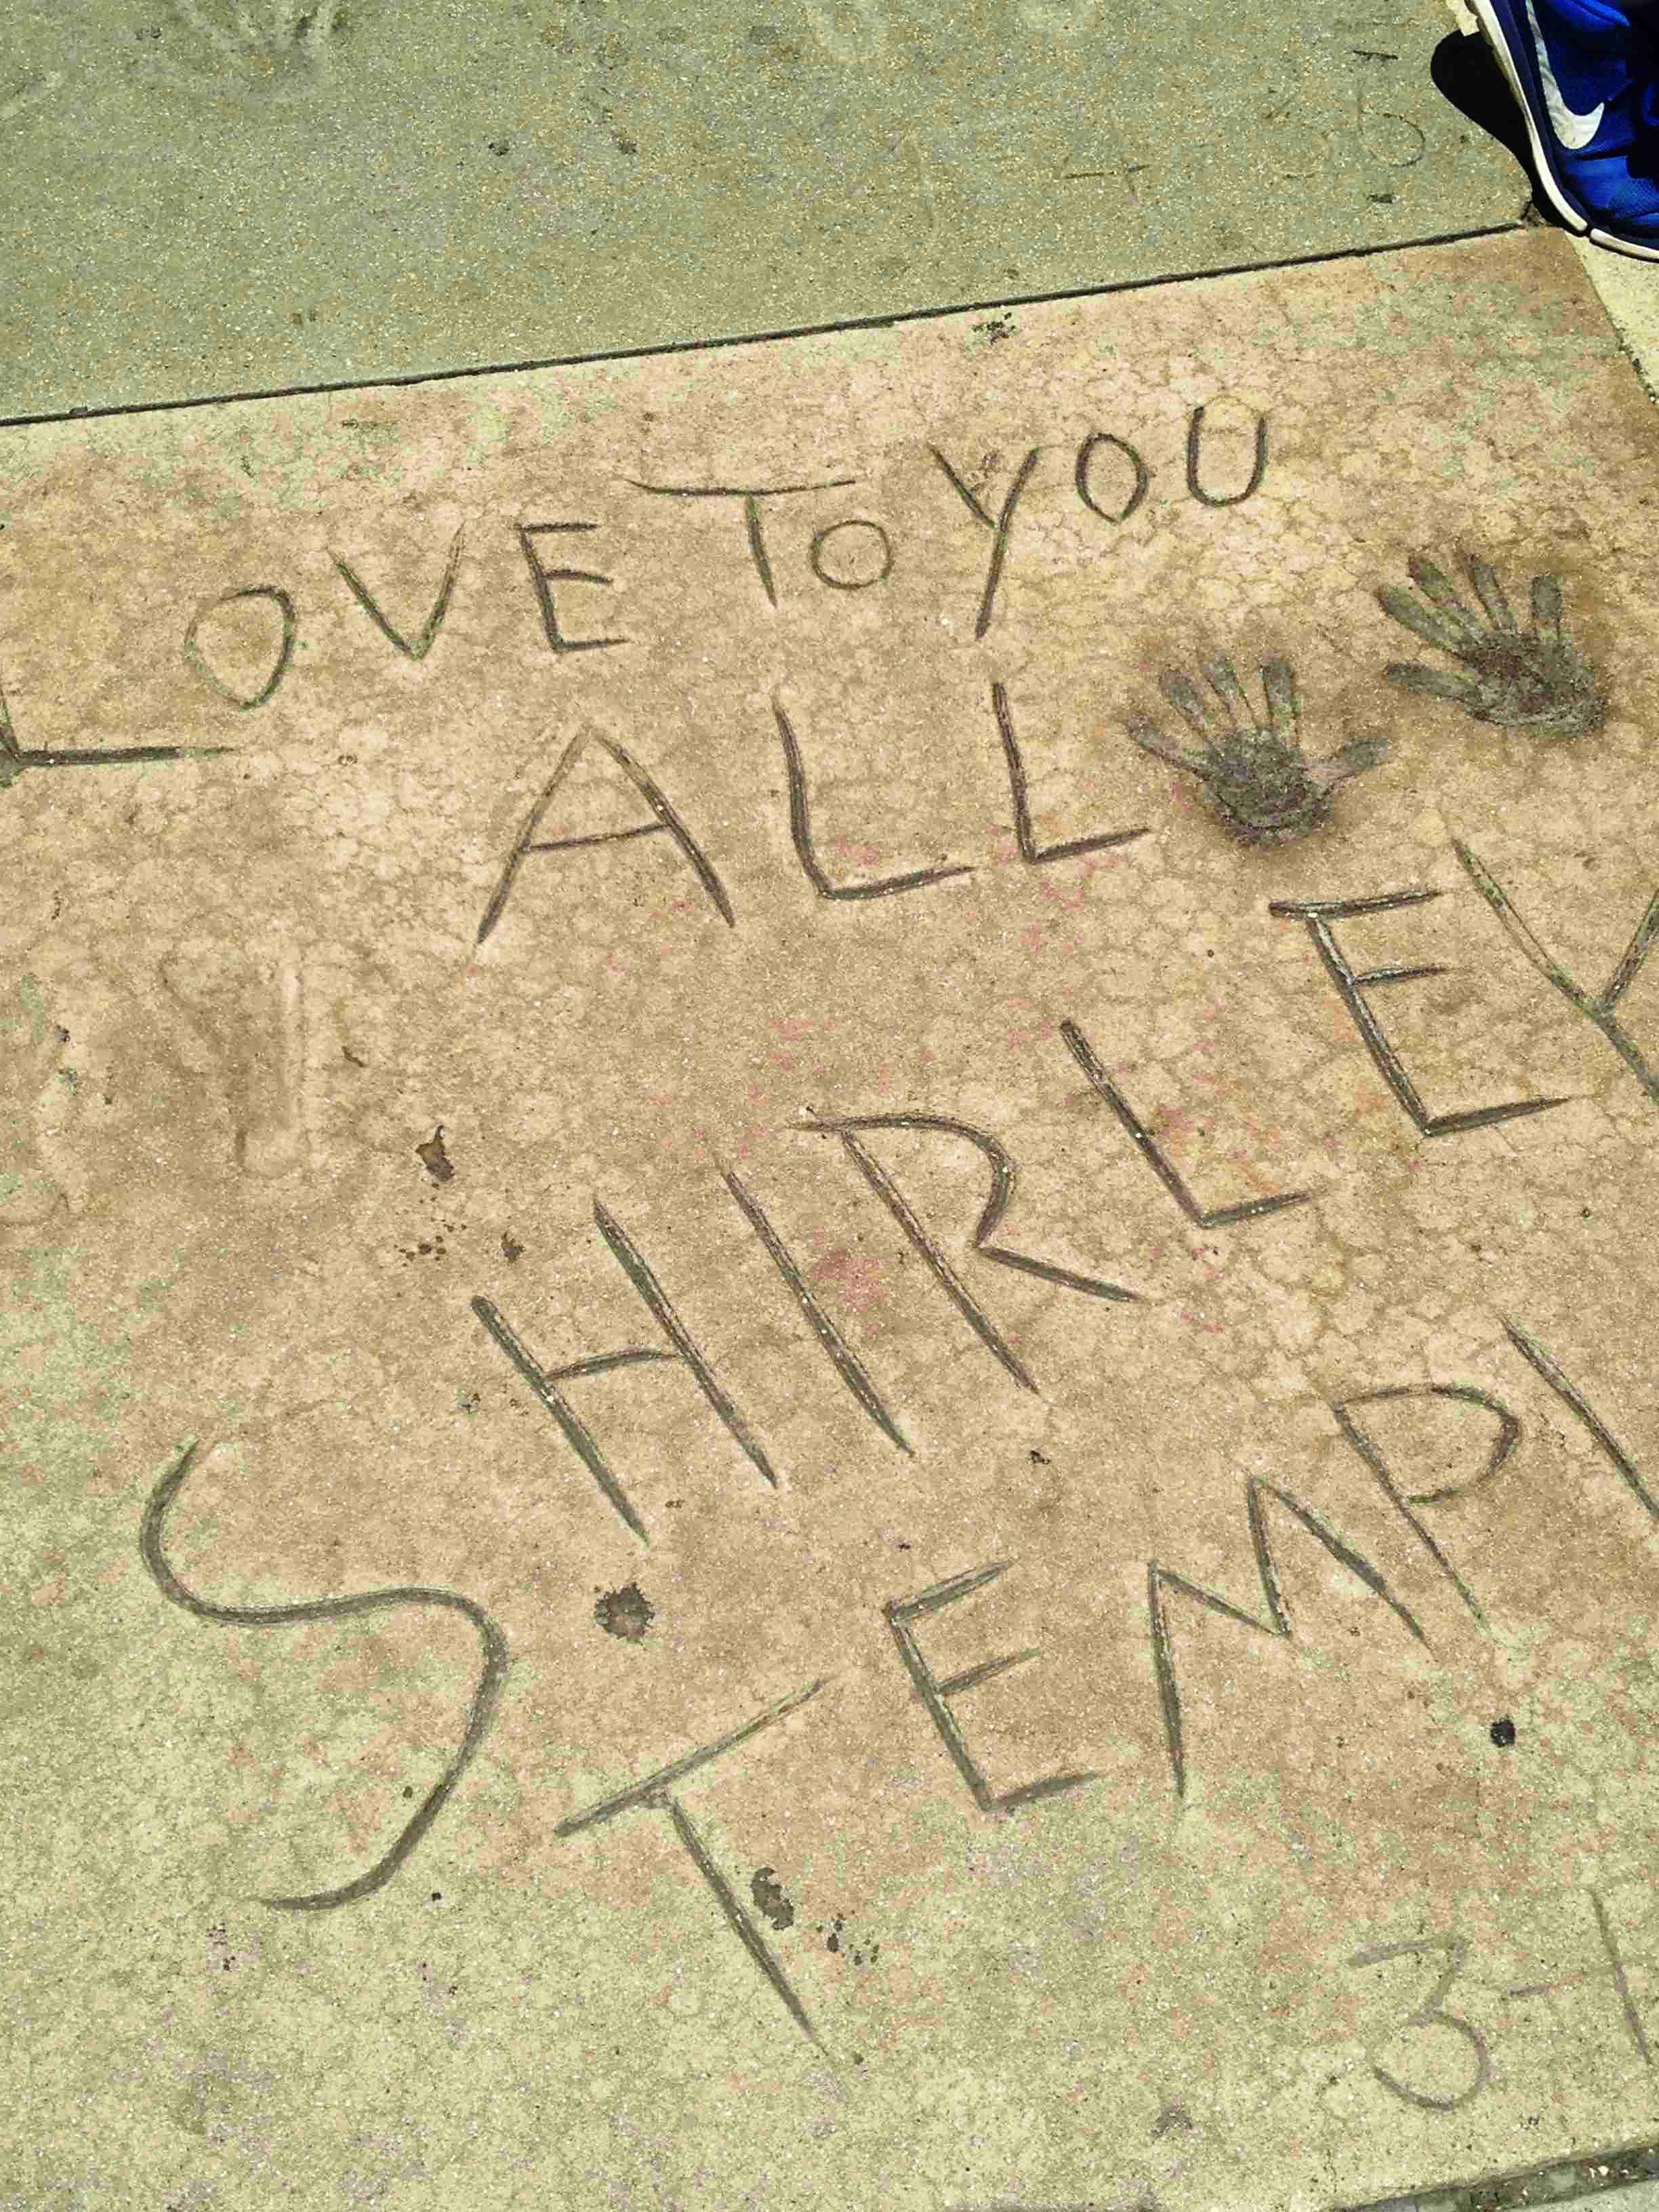 LOVE TO YOU
ALL
SHIRLEY
TEMPL
3-1